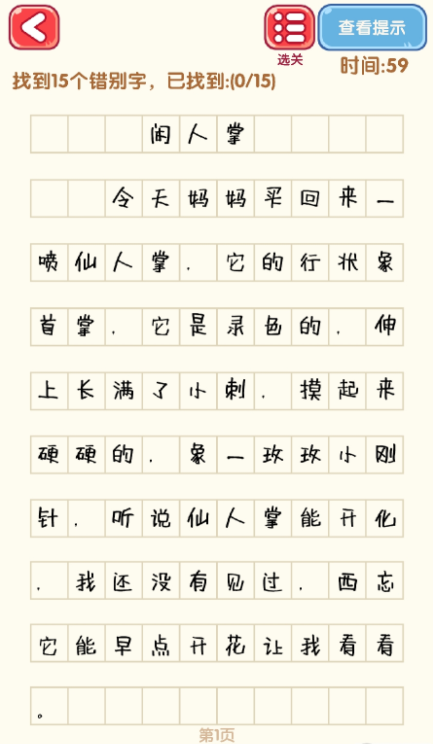 查看提示
选关
时间:59
找到15个错别字，已找到:(0/15)
闲人掌
令天妈妈买回来一
喷仙人掌.它的行状象
首掌.它是录色的.伸
上长满了小刺.摸起来
硬硬的.象一玫玫小刚
针.听说仙人掌能开化
.我还没有见过.西忘
它能早点开花让我看看
。
第1页